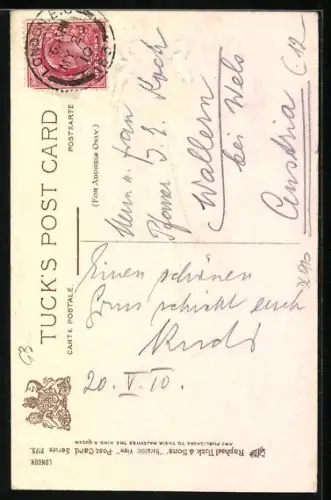 TUCK'S POST CARD
CARTE POSTALE.
POSTKARTE
(FOR ADDRESS ONLY.)
Herrn u. Frau
Pfarrer J. E. Koch
Wallern
bei Wels
Austria
Einen schönen
Gruss schickt euch
Rudi
20. V. 10.
Raphael Tuck & Sons' "Heraldic View" Post Card Series 2175.
ART PUBLISHERS TO THEIR MAJESTIES THE KING & QUEEN
LONDON